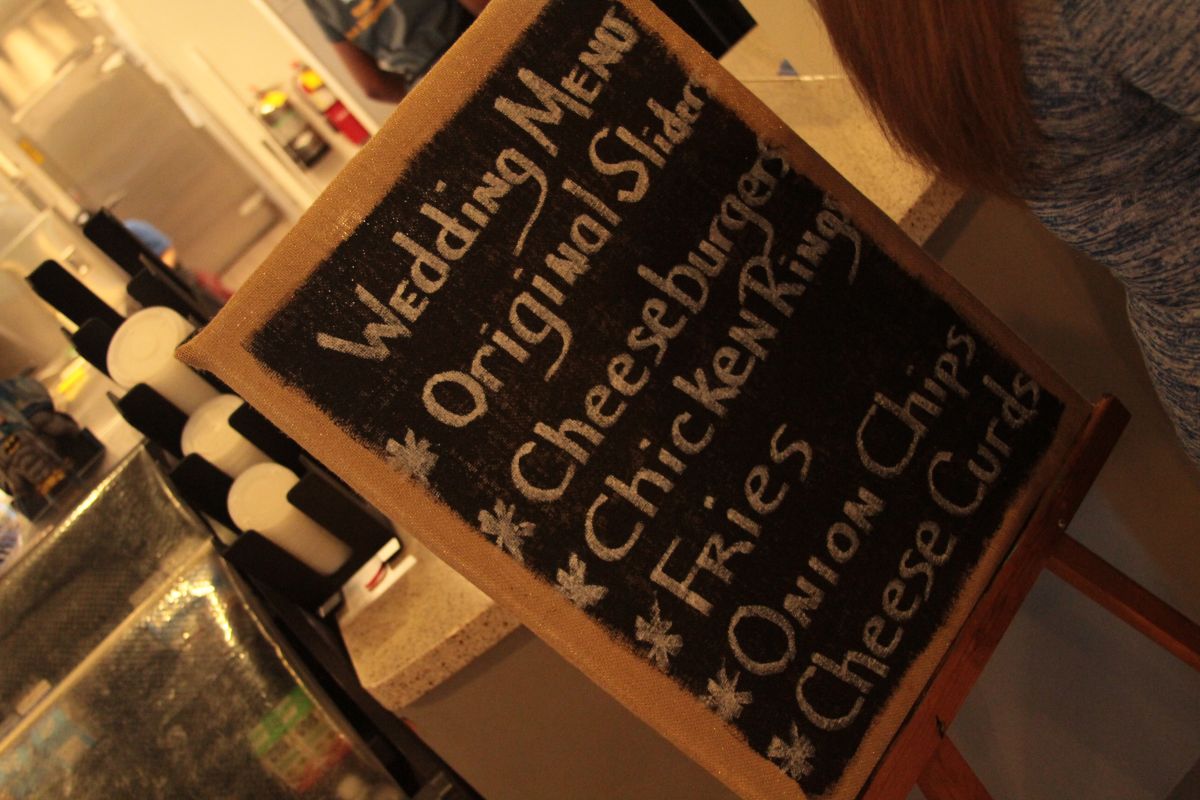 Wedding Menu
* Original Slider
* Cheeseburgers
* Chicken Rings
* Fries
* Onion Chips
* Cheese Curds